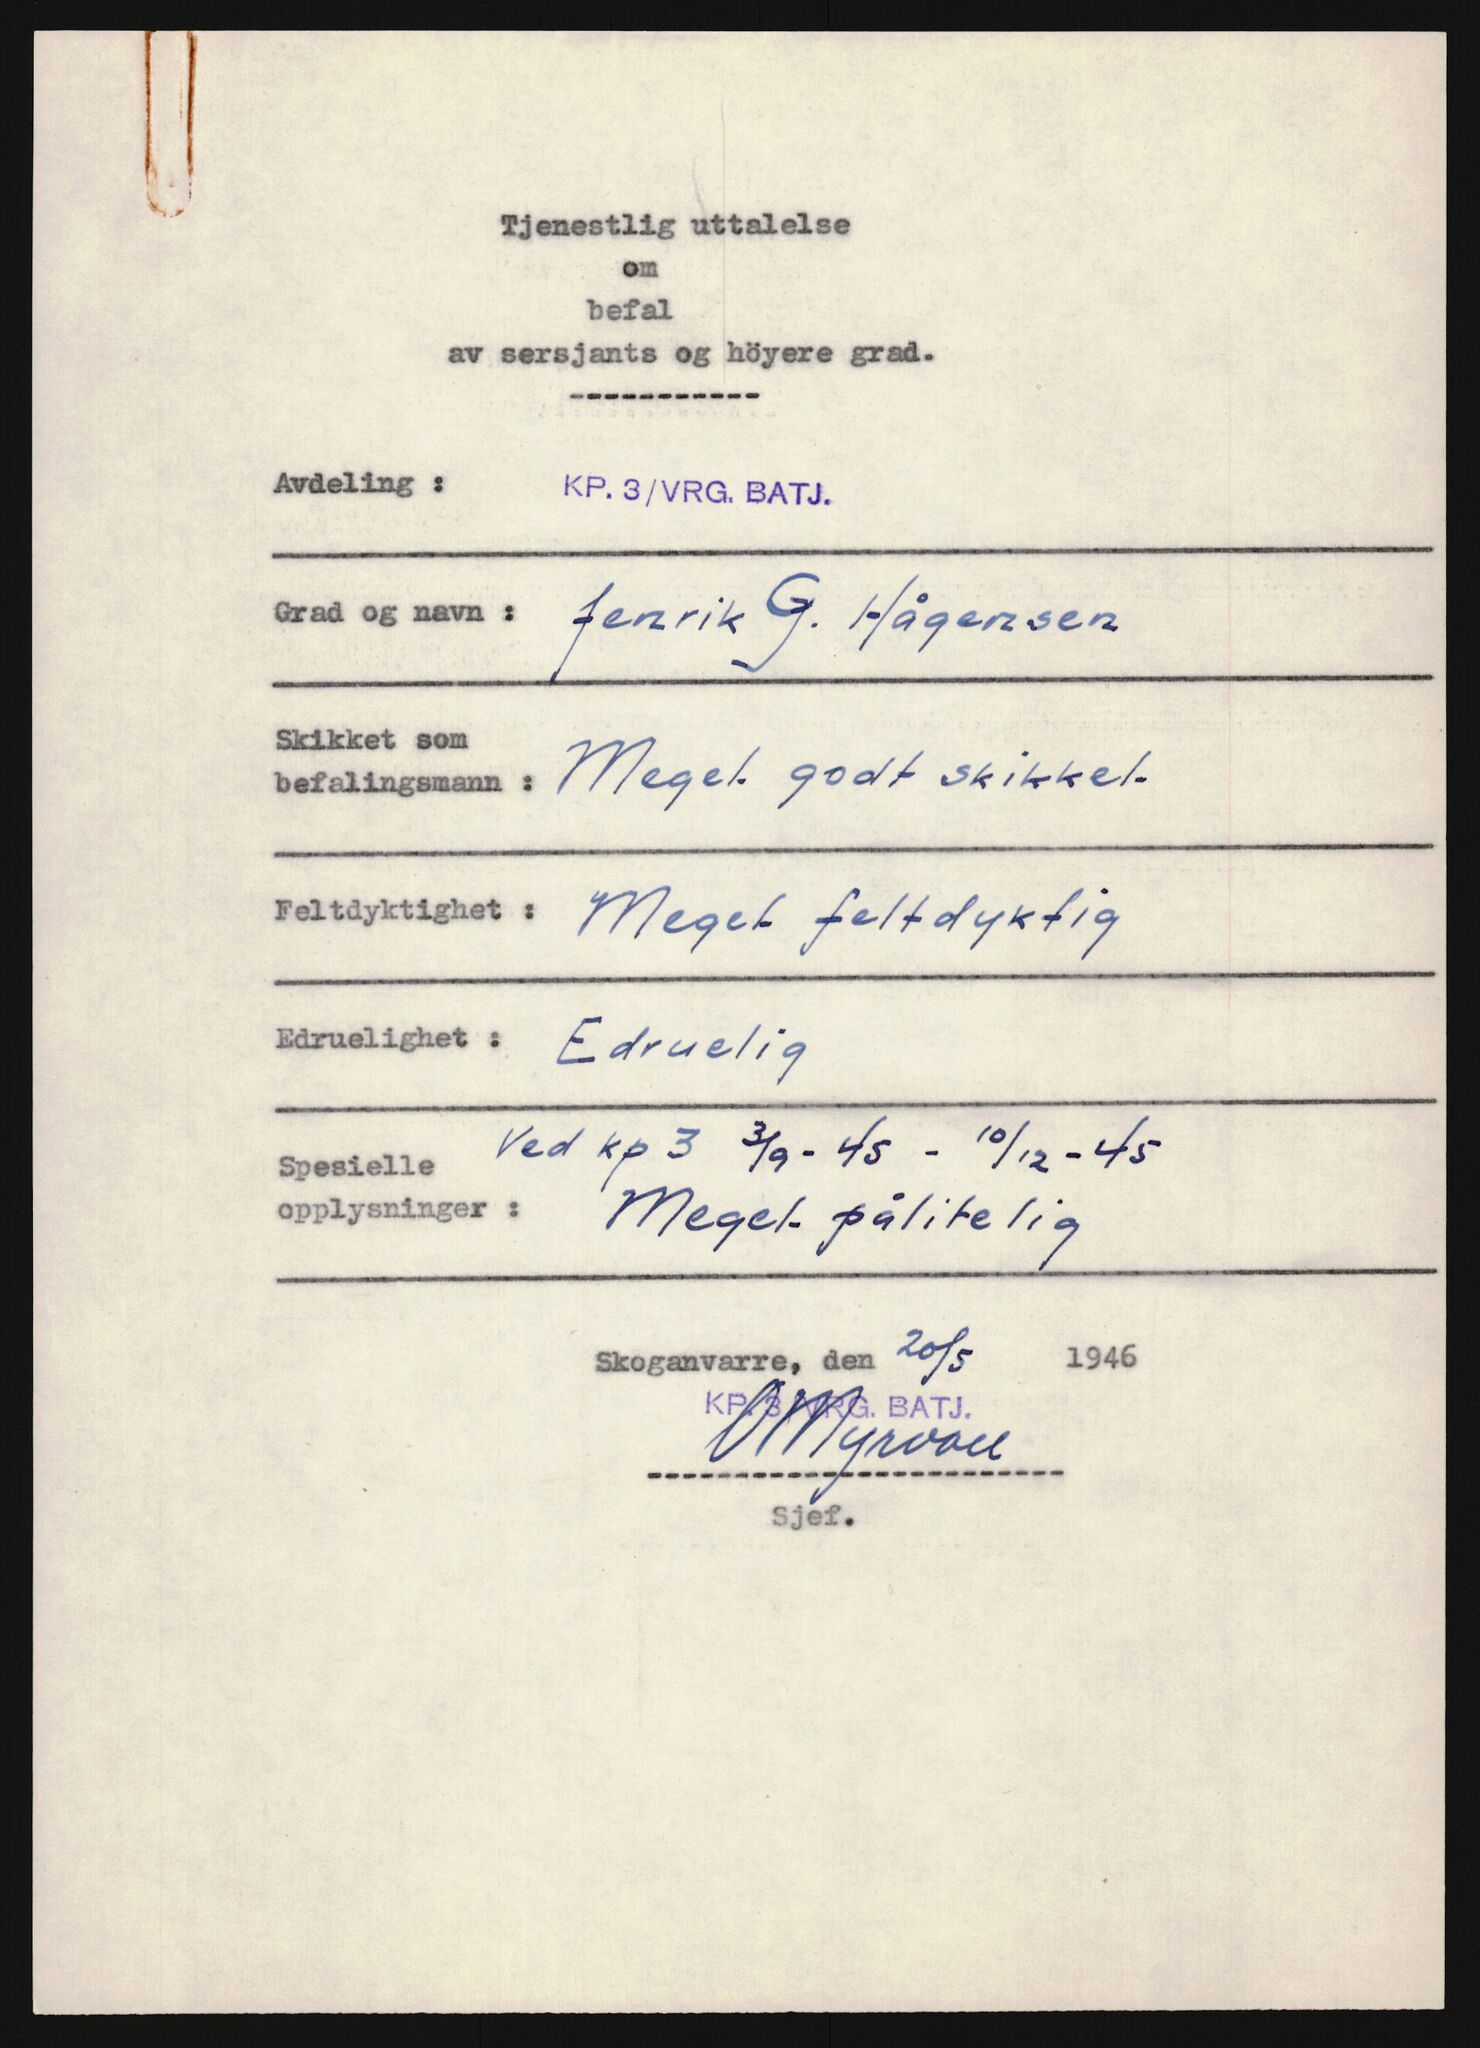 Tjenestlig uttalelse
om
befal
av sersjants og höyere grad.
-----------
Avdeling : KP. 3/VRG. BATJ.
Grad og navn : fenrik G. Hågensen
Skikket som
befalingsmann : Meget godt skikket
Feltdyktighet : Meget feltdyktig
Edruelighet : Edruelig
Ved kp 3 3/9-45 - 10/12-45
Spesielle
opplysninger : Meget pålitelig
Skoganvarre, den 20/5 1946
KP. 3/VRG. BATJ.
OMyrvoll
Sjef.